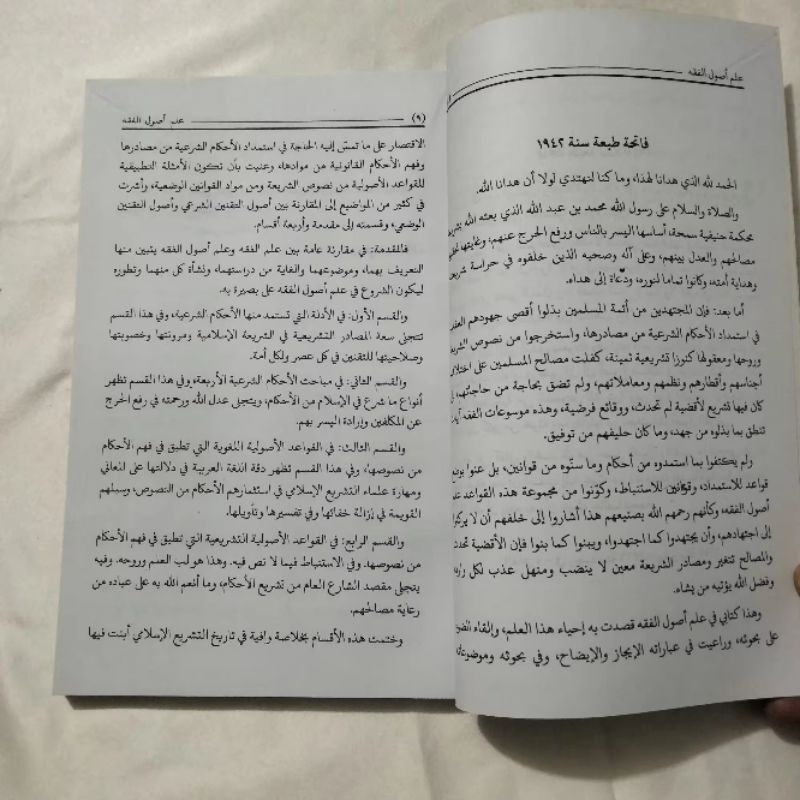 علم أصول الفقه
فاتحة طبعة سنة ١٩٤٢
الحمد لله الذي هدانا لهذا، وما كنا لنهتدي لولا أن هدانا الله.
والصلاة والسلام على رسول الله محمد بن عبد الله الذي بعثه الله
محكمة حنيفية سمحة، أساسها اليسر بالناس ورفع الحرج عنهم، وغايتها
مصالحهم والعدل بينهم، وعلى آله وصحبه الذين خلفوه في حراسة
وهداية أمته، وكانوا تماما لنوره، ودعاة إلى هداه.
أما بعد: فإن المجتهدين من أئمة المسلمين بذلوا أقصى جهودهم
في استمداد الأحكام الشرعية من مصادرها، واستخرجوا من نصوص
وروحها ومعقولها كنوزا تشريعية ثمينة، كفلت مصالح المسلمين على
أجناسهم وأقطارهم ونظمهم ومعاملاتهم، ولم تضق بحاجة من حاجاتهم،
كان فيها تشريع لأقضية لم تحدث، ووقائع فرضية، وهذه موسوعات الفقه
تنطق بما بذلوه من جهد، وما كان حليفهم من توفيق.
ولم يكتفوا بما استمدوه من أحكام وما سنّوه من قوانين، بل عنوا بوضع
قواعد للاستمداد، وقوانين للاستنباط، وكوّنوا من مجموعة هذه القواعد
أصول الفقه، وكأنهم رحمهم الله بصنيعهم هذا أشاروا إلى خلفهم أن لا
إلى اجتهادهم، وأن يجتهدوا كما اجتهدوا، ويبنوا كما بنوا فإن الأقضية
والمصالح تتغير ومصادر الشريعة معين لا ينضب ومنهل عذب لكل
وفضل الله يؤتيه من يشاء.
وهذا كتابي في علم أصول الفقه قصدت به إحياء هذا العلم، وإلقاء
على بحوثه، وراعيت في عباراته الإيجاز والإيضاح، وفي بحوثه
علم أصول الفقه (٩)
الاقتصار على ما تمسّ إليه الحاجة في استمداد الأحكام الشرعية من مصادرها
وفهم الأحكام القانونية من موادها، وعنيت بأن تكون الأمثلة التطبيقية
للقواعد الأصولية من نصوص الشريعة ومن مواد القوانين الوضعية، وأشرت
في كثير من المواضيع إلى المقارنة بين أصول التقنين الشرعي وأصول التقنين
الوضعي، وقسمته إلى مقدمة وأربعة أقسام.
فالمقدمة: في مقارنة عامة بين علم الفقه وعلم أصول الفقه يتبين منها
التعريف بهما، وموضوعهما والغاية من دراستهما، ونشأة كل منهما وتطوره
ليكون الشروع في علم أصول الفقه على بصيرة به.
والقسم الأول: في الأدلة التي تستمد منها الأحكام الشرعية، وفي هذا القسم
تتجلى سعة المصادر التشريعية في الشريعة الإسلامية ومرونتها وخصوبتها
وصلاحيتها للتقنين في كل عصر ولكل أمة.
والقسم الثاني: في مباحث الأحكام الشرعية الأربعة، وفي هذا القسم تظهر
أنواع ما شرع في الإسلام من الأحكام، ويتجلى عدل الله ورحمته في رفع الحرج
عن المكلفين وإرادة اليسر بهم.
والقسم الثالث: في القواعد الأصولية اللغوية التي تطبق في فهم الأحكام
من نصوصها، وفي هذا القسم تظهر دقة اللغة العربية في دلالتها على المعاني
ومهارة علماء التشريع الإسلامي في استثمارهم الأحكام من النصوص، وسبلهم
القويمة في إزالة خفائها وفي تفسيرها وتأويلها.
والقسم الرابع: في القواعد الأصولية التشريعية التي تطبق في فهم الأحكام
من نصوصها. وفي الاستنباط فيما لا نص فيه. وهذا هو لب العلم وروحه. وفيه
يتجلى مقصد الشارع العام من تشريع الأحكام، وما أنعم الله به على عباده من
رعاية مصالحهم.
وختمت هذه الأقسام بخلاصة وافية في تاريخ التشريع الإسلامي أبنت فيها